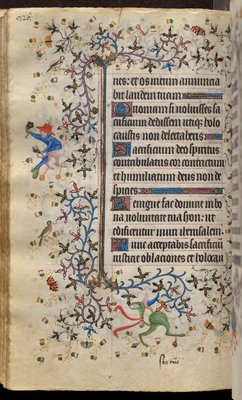 nes: et os meum annuncia
bit laudem tuam
Quoniam si voluisses sa
crificium dedissem utiq; holo
caustis non delectaberis
Sacrificium deo spiritus
contribulatus cor contrictum
et humiliatum deus non de
spicies
Benigne fac domine in bo
na voluntate tua syon: ut
edificentur muri iherusalem
Tunc acceptabis sacrificiu
iusticie oblaciones et holocau